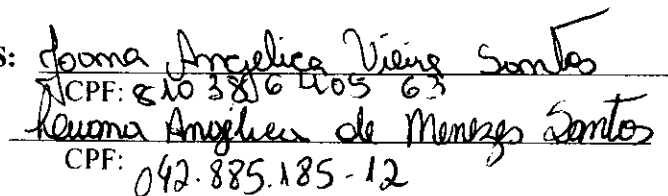 s: Joana Angelica Vieira Santos
CPF: 810 386 405 63
Luana Angélica de Menezes Santos
CPF: 042.885.185-12